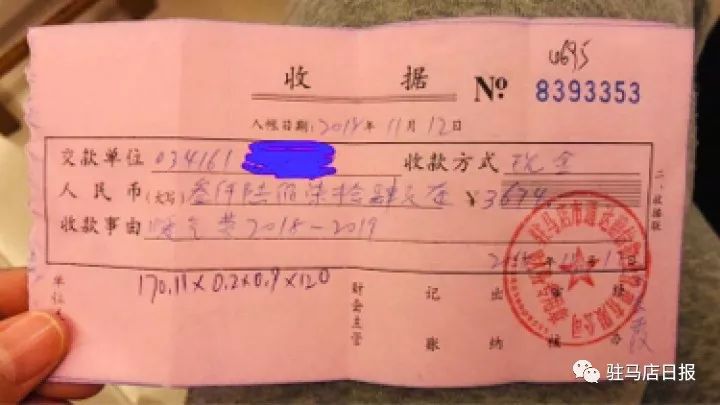 收 据
№ 8393353
入帐日期:2018年11月12日
交款单位 034161 收款方式 现金
人民币(大写) 叁仟陆佰柒拾肆元 ¥3674
收款事由 暖气费2018-2019
170.11×0.2×0.9×120
财会主管
记账
出纳
二、收据联
驻马店日报